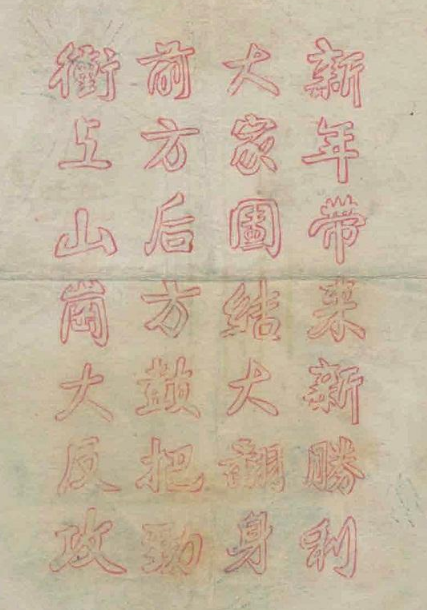 新年帶来新勝利
大家團結大翻身
前方后方鼓把勁
衝上山崗大反攻